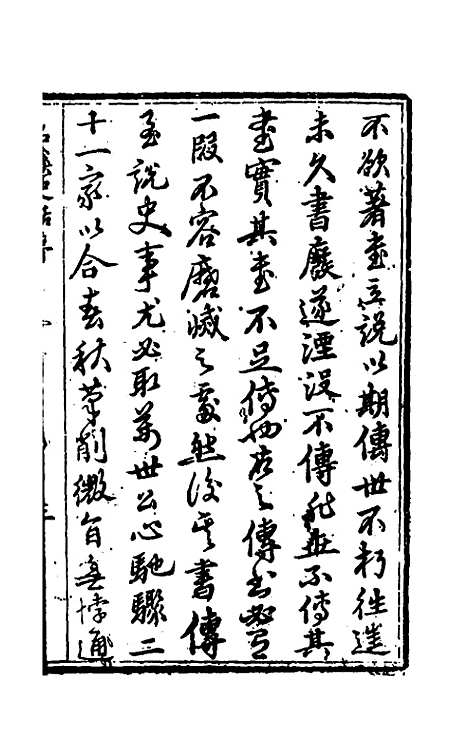 不欲著書立說以期傳世不朽往進
未久書廢遂湮沒不傳非無不傳其
書實其書不足傳也古之傳書必有
一段不容磨滅之處然後其書傳
至說史事尤必取萬世公心馳驟二
十一家以合春秋筆削微旨無悖適